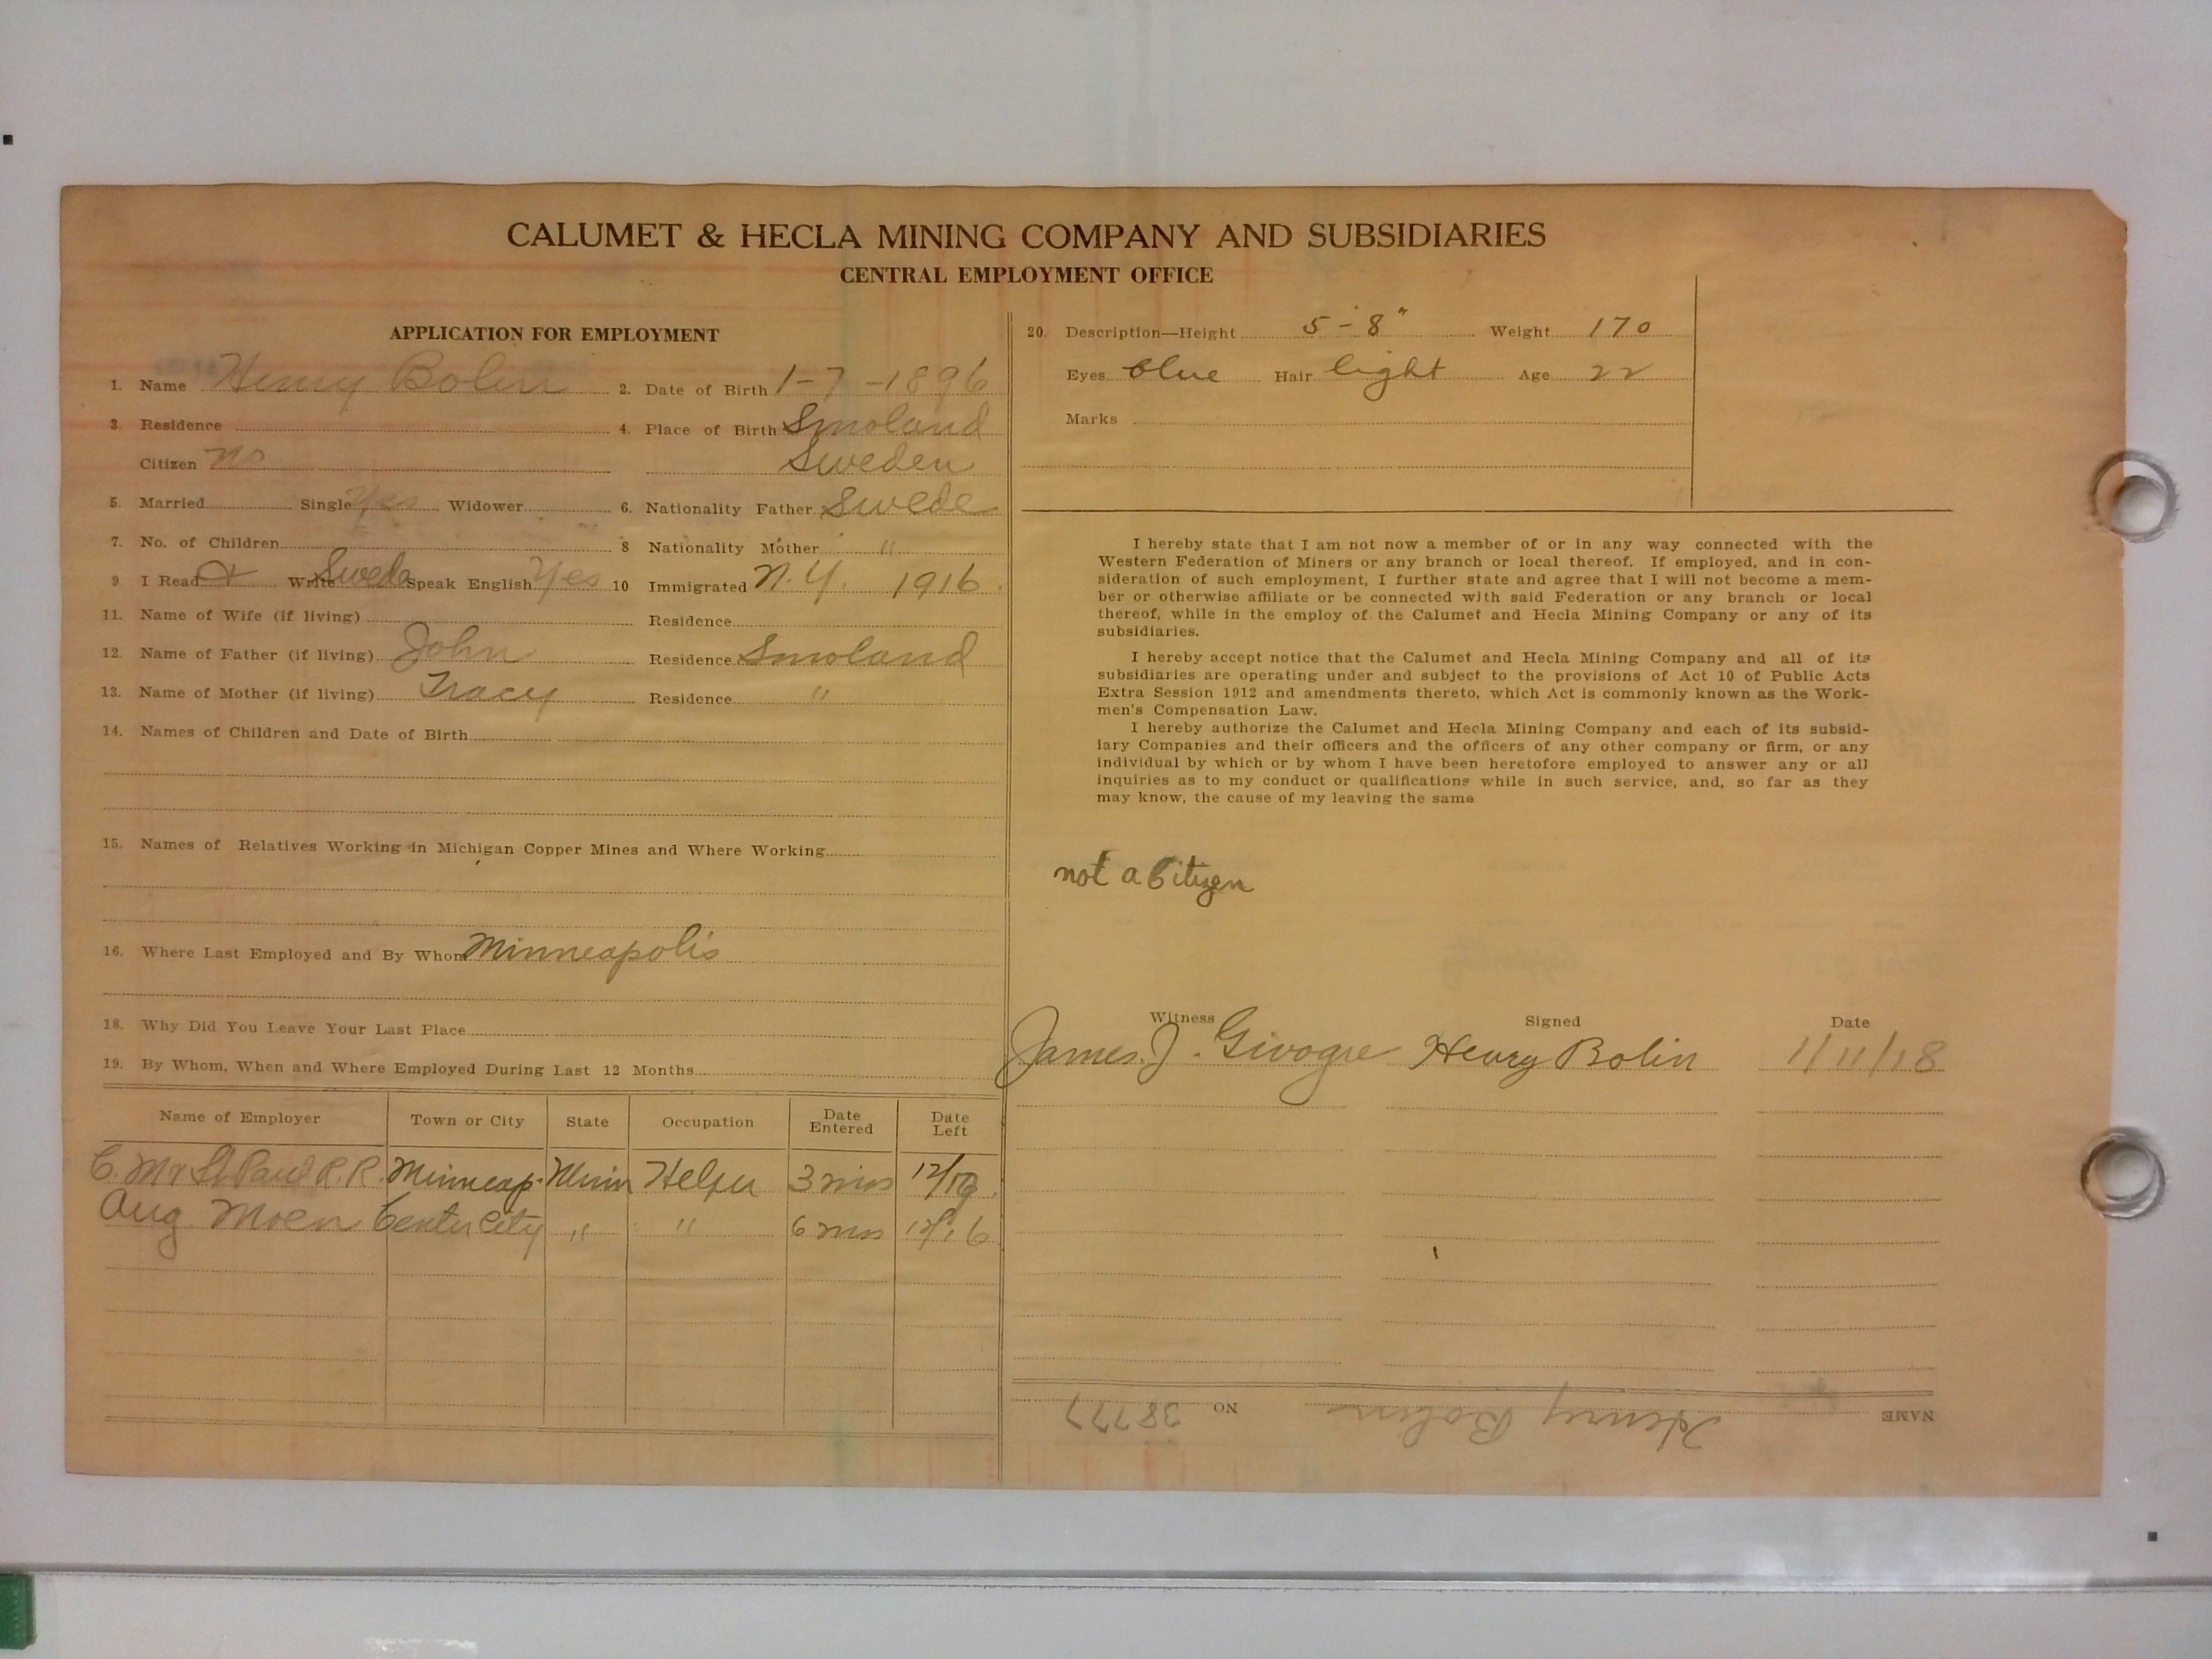 CALUMET & HECLA MINING COMPANY AND SUBSIDIARIES
CENTRAL EMPLOYMENT OFFICE
APPLICATION FOR EMPLOYMENT
1. Name Henry Bolin 2. Date of Birth 1-7-1896
3. Residence 4. Place of Birth Smoland
Citizen no Sweden
5. Married Single Yes Widower 6. Nationality Father Swede
7. No. of Children 8 Nationality Mother "
9 I Read & Write Swede Speak English Yes 10 Immigrated N.Y. 1916
11. Name of Wife (if living) Residence
12. Name of Father (if living) John Residence Smoland
13. Name of Mother (if living) Tracy Residence "
14. Names of Children and Date of Birth
15. Names of Relatives Working in Michigan Copper Mines and Where Working
16. Where Last Employed and By Whom Minneapolis
18. Why Did You Leave Your Last Place
19. By Whom, When and Where Employed During Last 12 Months
Name of Employer Town or City State Occupation Date Entered Date Left
C. M & St Paul R.R. Minneap. Minn Helper 3 mos
Aug. Moen Center City " " 6 mos
20. Description—Height 5-8" Weight 170
Eyes blue Hair light Age 22
Marks
I hereby state that I am not now a member of or in any way connected with the
Western Federation of Miners or any branch or local thereof. If employed, and in con-
sideration of such employment, I further state and agree that I will not become a mem-
ber or otherwise affiliate or be connected with said Federation or any branch or local
thereof, while in the employ of the Calumet and Hecla Mining Company or any of its
subsidiaries.
I hereby accept notice that the Calumet and Hecla Mining Company and all of its
subsidiaries are operating under and subject to the provisions of Act 10 of Public Acts
Extra Session 1912 and amendments thereto, which Act is commonly known as the Work-
men's Compensation Law.
I hereby authorize the Calumet and Hecla Mining Company and each of its subsid-
iary Companies and their officers and the officers of any other company or firm, or any
individual by which or by whom I have been heretofore employed to answer any or all
inquiries as to my conduct or qualifications while in such service, and, so far as they
may know, the cause of my leaving the same
not a Citizen
Witness Signed Date
James J. Henry Bolin 1/11/18
NAME Henry Bolin NO 38777